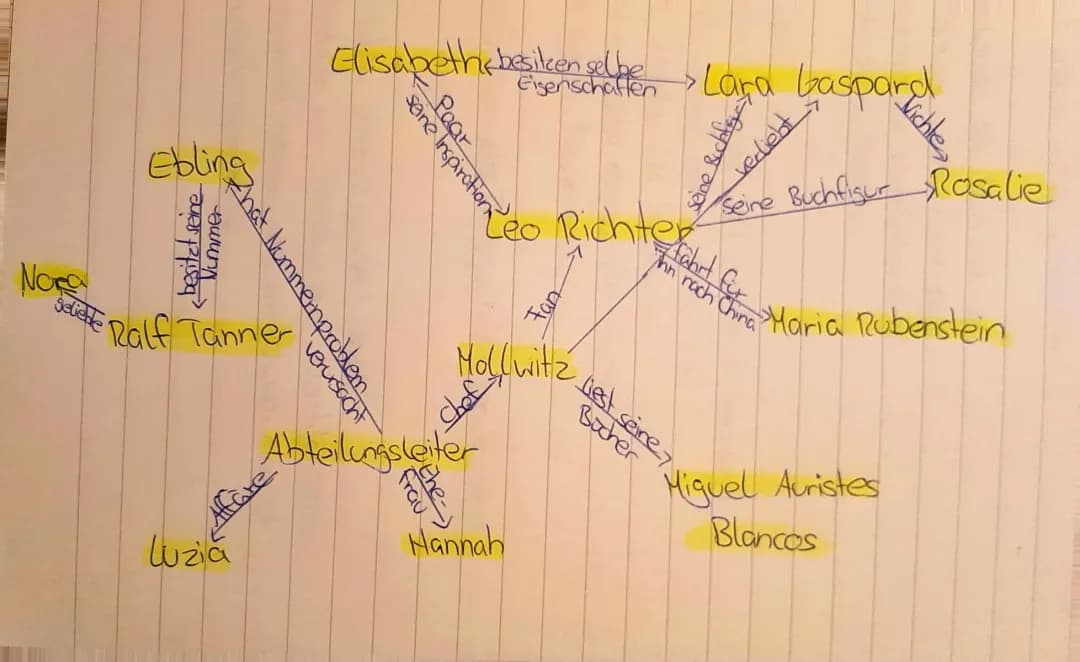 Elisabeth
besitzen selbe
Eigenschaften
Lara Gaspard
Nichte
Rosalie
Paar
seine Inspiration
seine Buchfigur
verliebt
seine Buchfigur
Ebling
besitzt seine
Nummer
hat Nummernproblem
verursacht
Leo Richter
fährt für
ihn nach China
Maria Rubenstein
Nora
geliebte
Ralf Tanner
Fan
Mollwitz
Chef
liest seine
Bücher
Abteilungsleiter
Affäre
Ehe-
frau
Miguel Auristes
Blancos
Luzia
Hannah